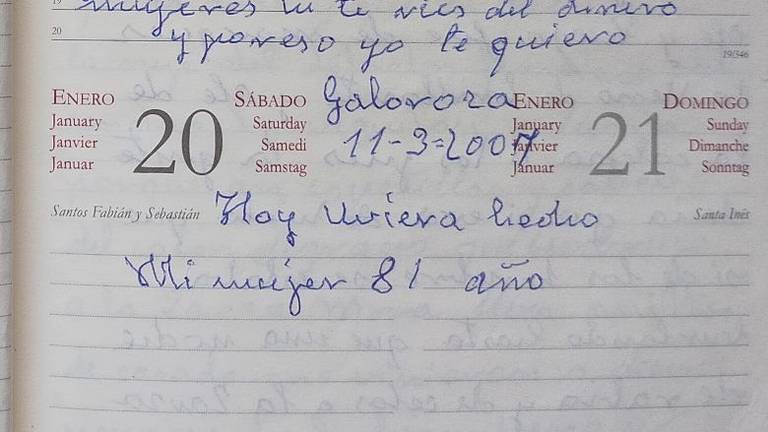 19
mujeres tu te ries del dinero
20
y por eso yo te quiero
19/346
ENERO
January
Janvier
Januar
20
SÁBADO
Saturday
Samedi
Samstag
Galoroza
11-3=2007
ENERO
January
Janvier
Januar
21
DOMINGO
Sunday
Dimanche
Sonntag
Santos Fabián y Sebastián
Hoy Uviera hecho
Santa Inés
Mi mujer 81 año